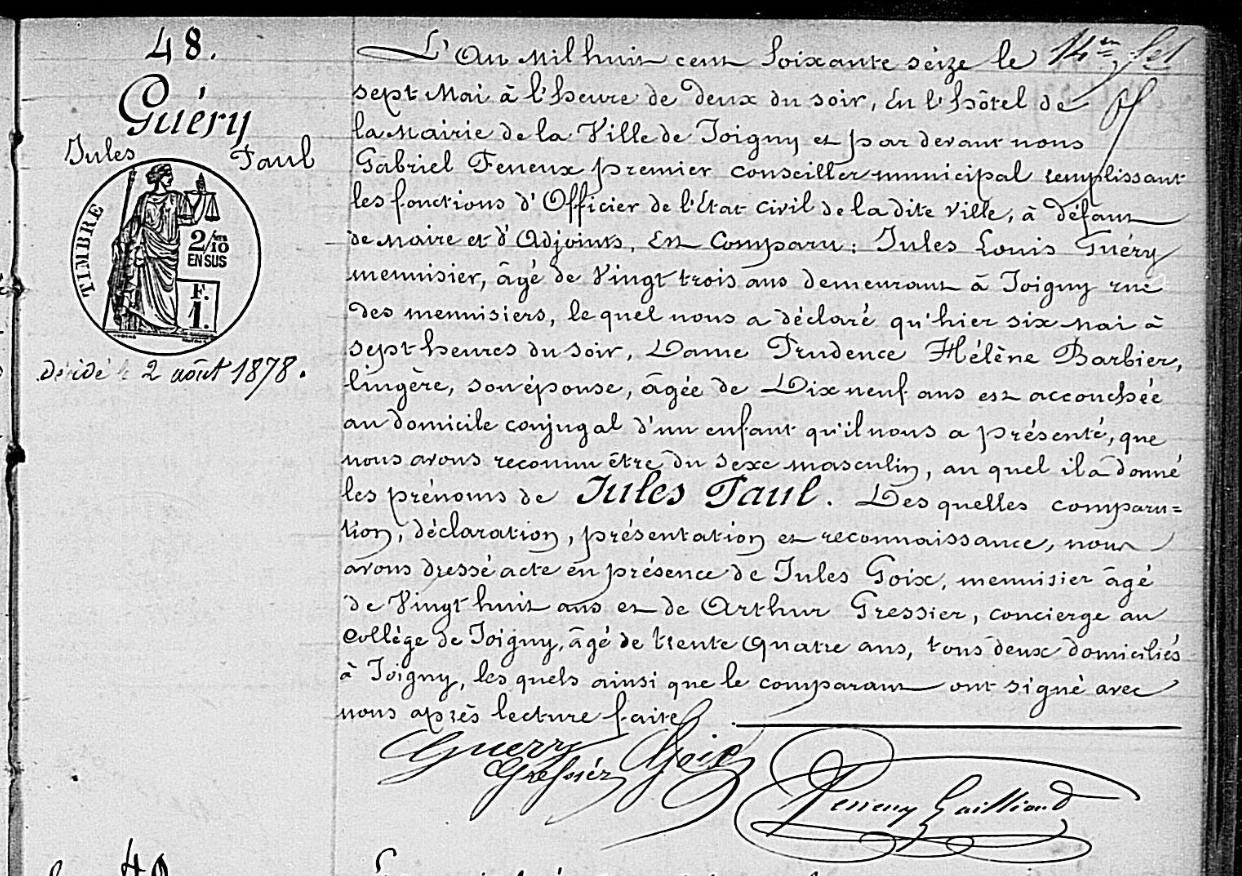 48.
Guéry
Jules Paul
TIMBRE
2/10
EN SUS
F.
1.
décédé le 2 août 1878.
L'An Mil huit cent soixante seize le
sept Mai à l'heure de deux du soir, En l'hôtel de
la Mairie de la Ville de Joigny et par devant nous
Gabriel Feneux premier conseiller municipal remplissant
les fonctions d'Officier de l'État civil de la dite ville, à défaut
de Maire et d'Adjoints, Est Comparu: Jules Louis Guéry
menuisier, âgé de Vingt trois ans demeurant à Joigny rue
des menuisiers, le quel nous a déclaré qu'hier six Mai à
sept heures du soir, Dame Prudence Hélène Barbier,
lingère, son épouse, âgée de Dix neuf ans est accouchée
au domicile conjugal d'un enfant qu'il nous a présenté, que
nous avons reconnu être du sexe masculin, au quel il a donné
les prénoms de Jules Paul. Des quelles comparu=
tion, déclaration, présentation et reconnaissance, nous
avons dressé acte en présence de Jules Goix, menuisier âgé
de Vingt huit ans et de Arthur Gressier, concierge au
collège de Joigny, âgé de trente quatre ans, tous deux domiciliés
à Joigny, les quels ainsi que le comparant ont signé avec
nous après lecture faite
Guéry Goix
Gressier
Feneux Gailliard
49